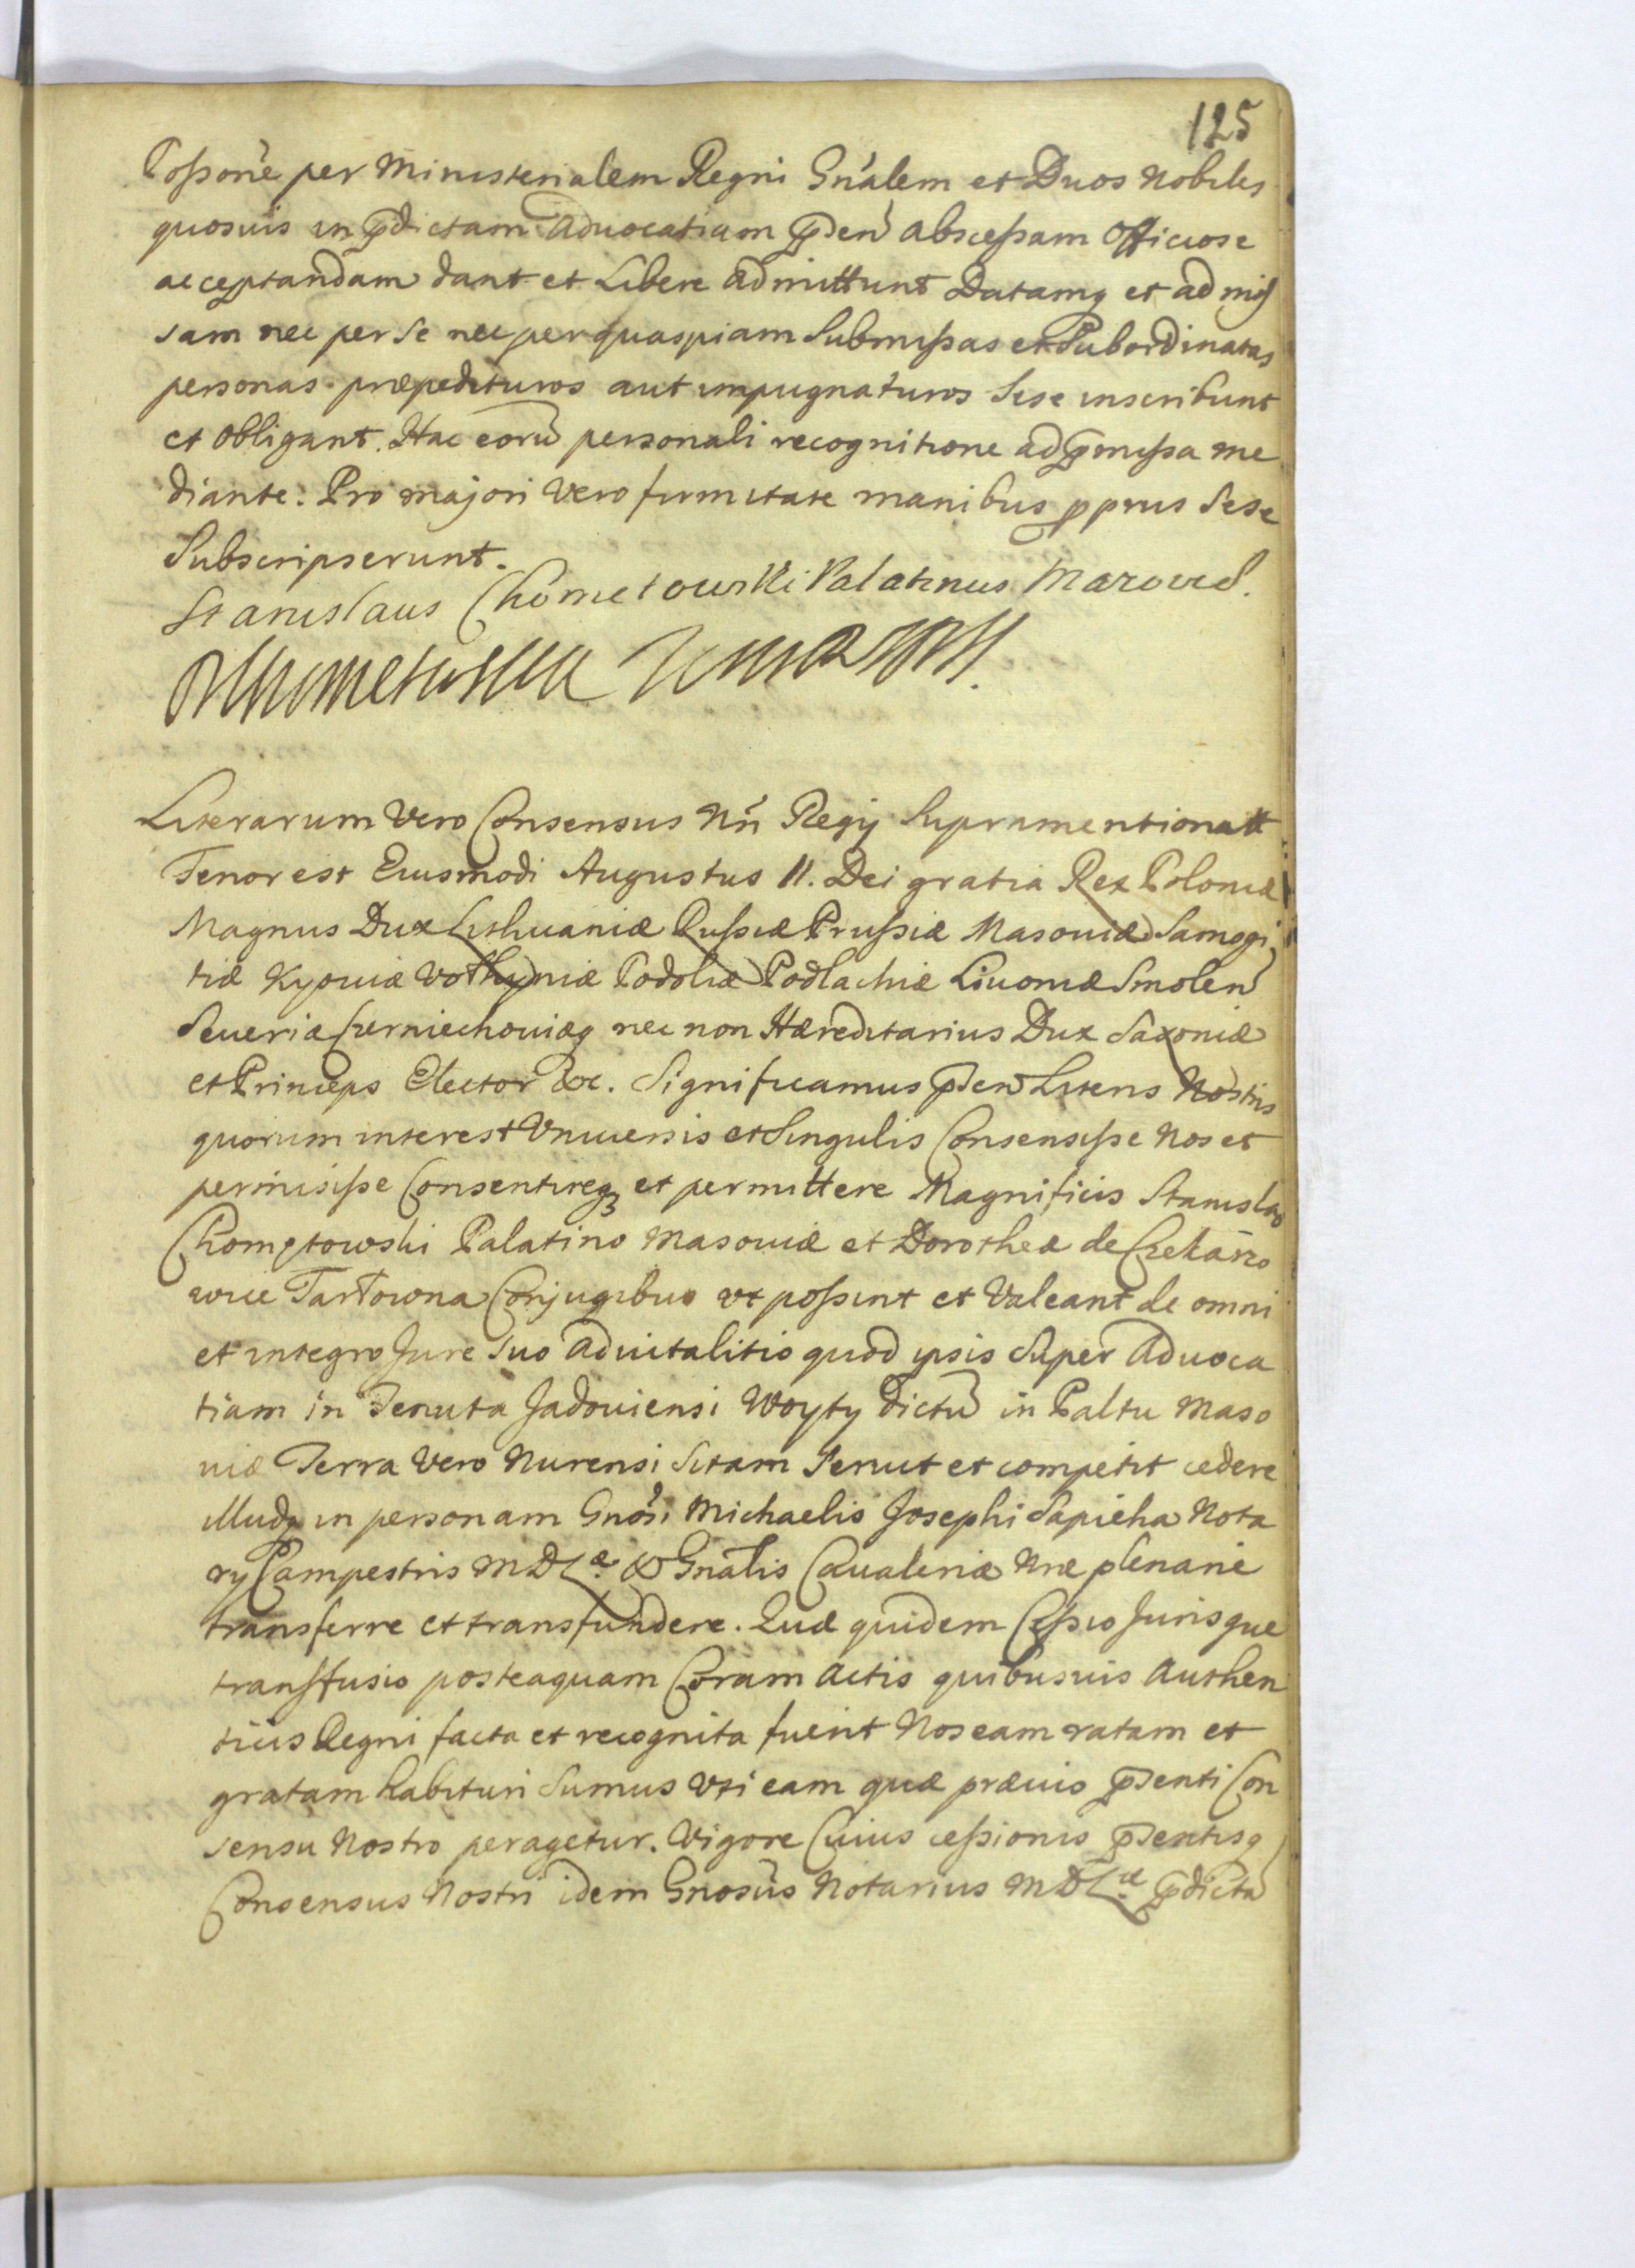 125
Possone per Ministerialem Regni Gnalem et Duos Nobiles
quosuis in pdictam Aduocatiam pden abscessam Officiose
acceptandam dant et Libere admittunt Datamq et admis
sam nec per se nec per quaspiam Submissas et Subordinatas
personas præpedituros aut impugnaturos Sese inscribunt
et obligant. Hac eorũ personali recognitione ad pmissa me
diante. Pro majori Vero firmitate manibus pprus Sese
Subscripserunt.
Stanislaus Chometowski Palatinus Mazovis.
Literarum Vero Consensus Nri Regij Supramentionatt
Tenor est Eiusmodi Augustus II. Dei gratia Rex Poloniæ
Magnus Dux Lithuaniæ Russiæ Prussiæ Masouiæ Samogi
tiæ Kyouiæ Volhyniæ Podoliæ Podlachiæ Liuoniæ Smolen
Seueriæ Czerniechouiæq nec non Hæreditarius Dux Saxoniæ
et Princeps Elector &c. Significamus psen Literis Nostris
quorum interest Vniuersis et Singulis Consensisse Nos et
permisisse Consentireq et permittere Magnificis Stanislao
Chomętowski Palatino Masouiæ et Dorotheæ de Czekarzo
wice Tarłowna Conjugibus vt possint et Valeant de omni
et integro Jure Suo aduitalitio quod ipsis Super Aduoca
tiam in Tenuta Jadouiensi Woyty dictũ in Paltu Maso
uiæ Terra Vero Nurensi Sitam Seruit et competit cedere
illudq in personam Gnosi Michaelis Josephi Sapieha Nota
rij Campestris MDLæ & Gnalis Caualeriæ Nræ plenarie
transferre et transfundere. Quæ quidem Cessio Jurisque
transfusio posteaquam Coram Actis quibusuis Authen
ticis Regni facta et recognita fuerit Nos eam ratam et
gratam habituri Sumus Vti eam quæ præuio psenti Con
sensu Nostro peragetur. Vigore Cuius cessionis psentisq
Consensus Nostri idem Gnosus Notarius MDLæ pdictã